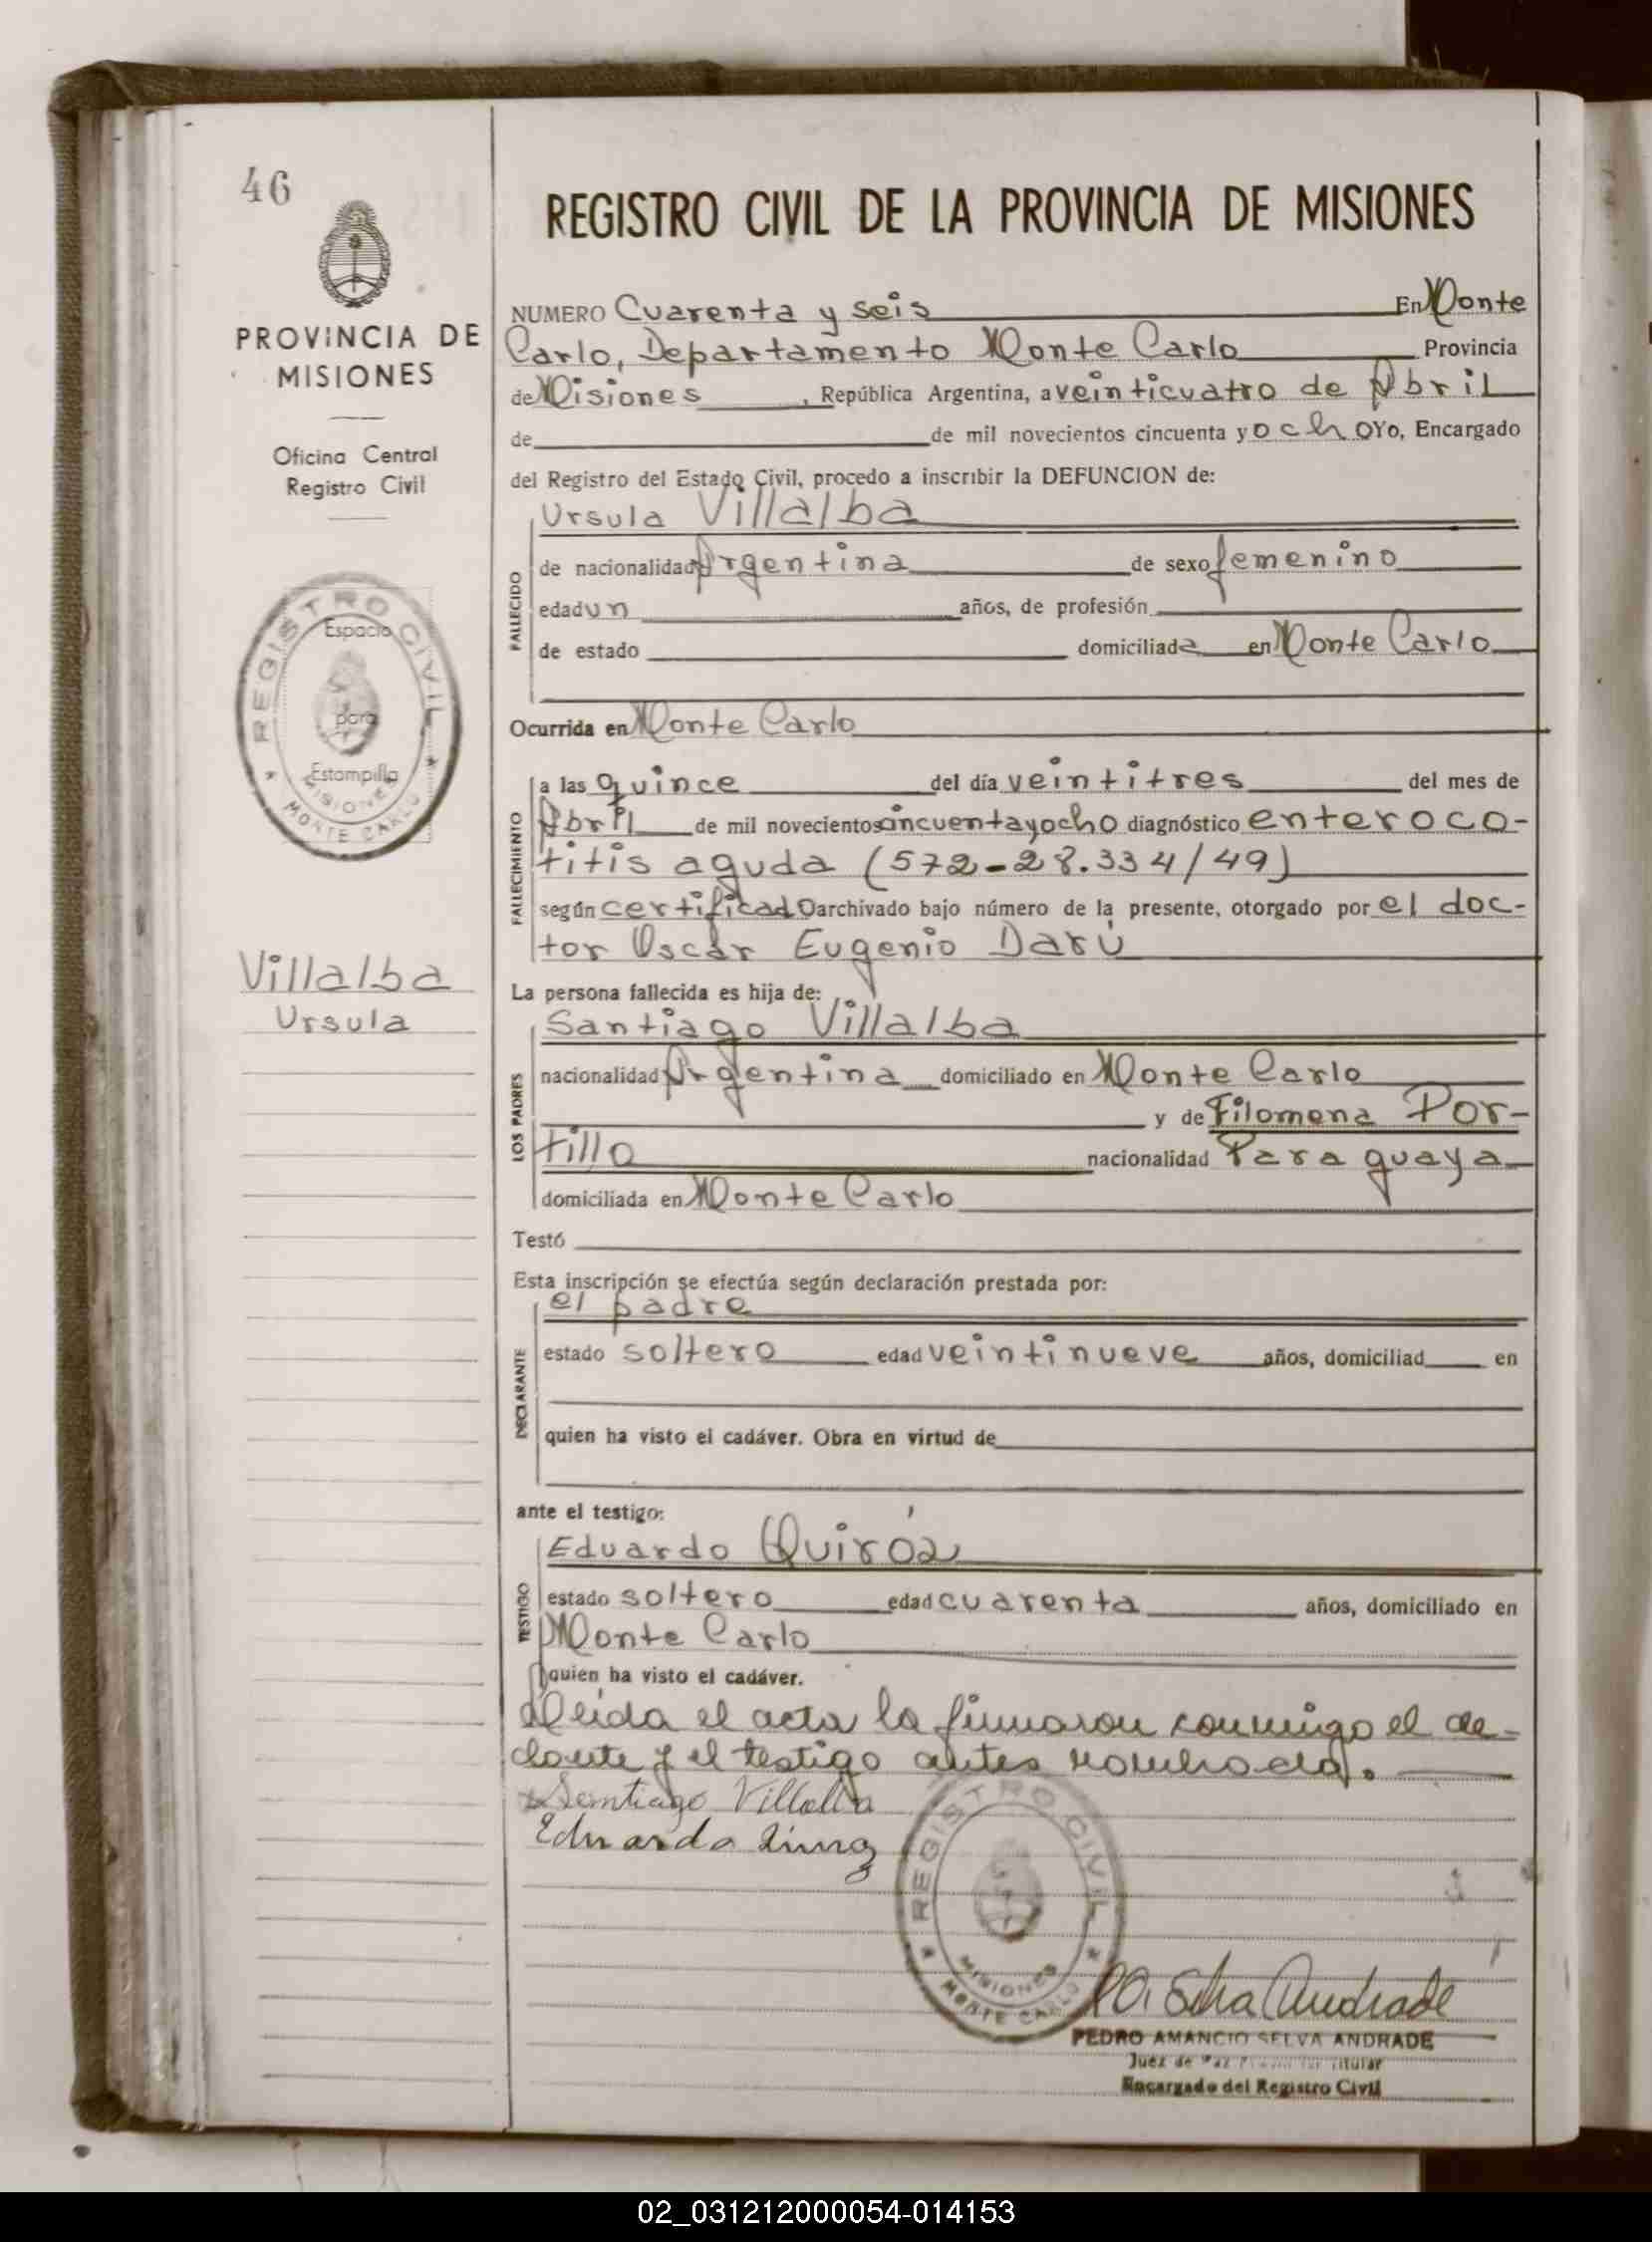 46
PROVINCIA DE
MISIONES
Oficina Central
Registro Civil
REGISTRO CIVIL
Espacio
para
Estampilla
MISIONES
MONTE CARLO
Villalba
Ursula
REGISTRO CIVIL DE LA PROVINCIA DE MISIONES
NUMERO Cuarenta y seis En Monte
Carlo, Departamento Monte Carlo Provincia
de Misiones, República Argentina, a veinticuatro de Abril
de de mil novecientos cincuenta y ocho Yo, Encargado
del Registro del Estado Civil, procedo a inscribir la DEFUNCION de:
Ursula Villalba
FALLECIDO
de nacionalidad Argentina de sexo femenino
edad un años, de profesión
de estado domiciliada en Monte Carlo
Ocurrida en Monte Carlo
FALLECIMIENTO
a las quince del día veintitres del mes de
Abril de mil novecientos cincuentayocho diagnóstico enteroco-
titis aguda (572-28.334/49)
según certificado archivado bajo número de la presente, otorgado por el doc-
tor Oscar Eugenio Darú
La persona fallecida es hija de:
Santiago Villalba
LOS PADRES
nacionalidad Argentina domiciliado en Monte Carlo
y de Filomena Por-
tillo nacionalidad Paraguaya
domiciliada en Monte Carlo
Testó
Esta inscripción se efectúa según declaración prestada por:
el padre
DECLARANTE
estado soltero edad veintinueve años, domiciliad en
quien ha visto el cadáver. Obra en virtud de
ante el testigo:
Eduardo Quiróz
TESTIGO
estado soltero edad cuarenta años, domiciliado en
Monte Carlo
quien ha visto el cadáver.
Leida el acta la firmaron conmigo el de-
clante y el testigo antes nombrado.
Santiago Villalba
Eduardo
REGISTRO CIVIL
MISIONES
MONTE CARLO
P.A. Selva Andrade
PEDRO AMANCIO SELVA ANDRADE
Juez de Paz Titular
Encargado del Registro Civil
02_031212000054-014153